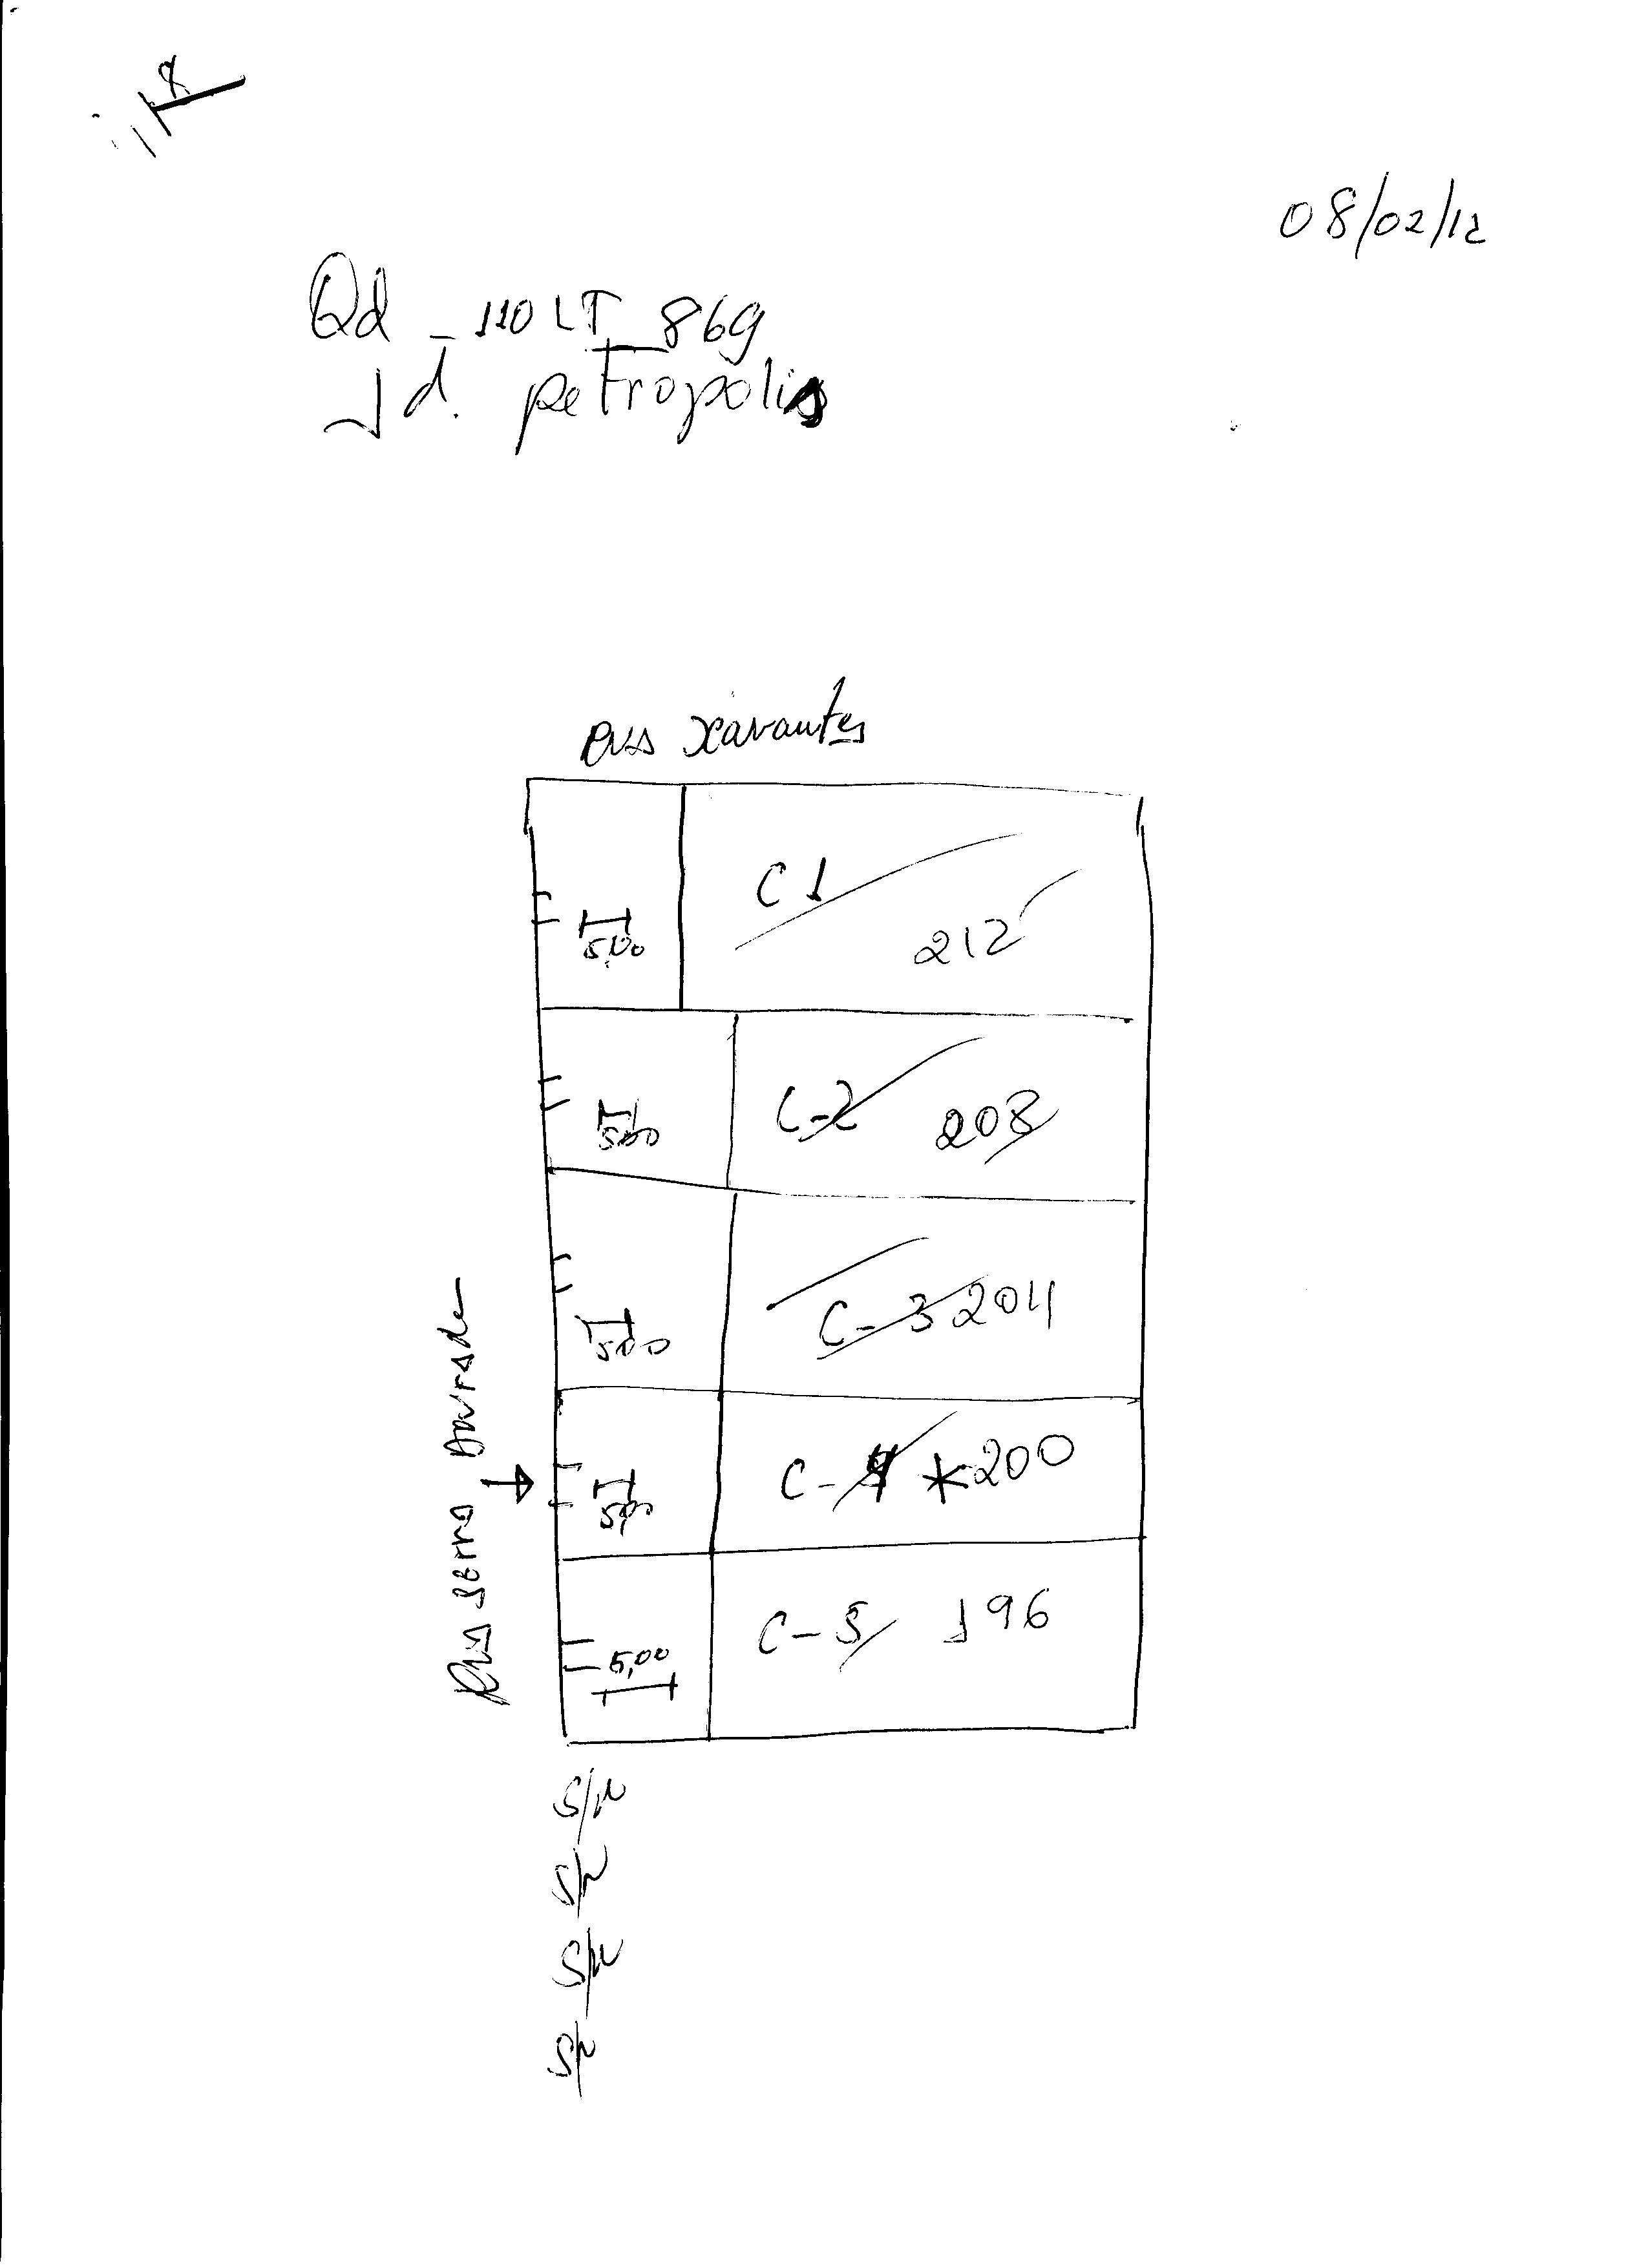 08/02/12
Qd - 110 LT 869
Jd. petropolis
Rua Xavantes
C 1
212
5,00
C-2 208
5,00
C-3 204
5,00
C-4 * 200
5,00
C-5 196
5,00
Rua Serra Dourada
S/N
S/N
S/N
S/N